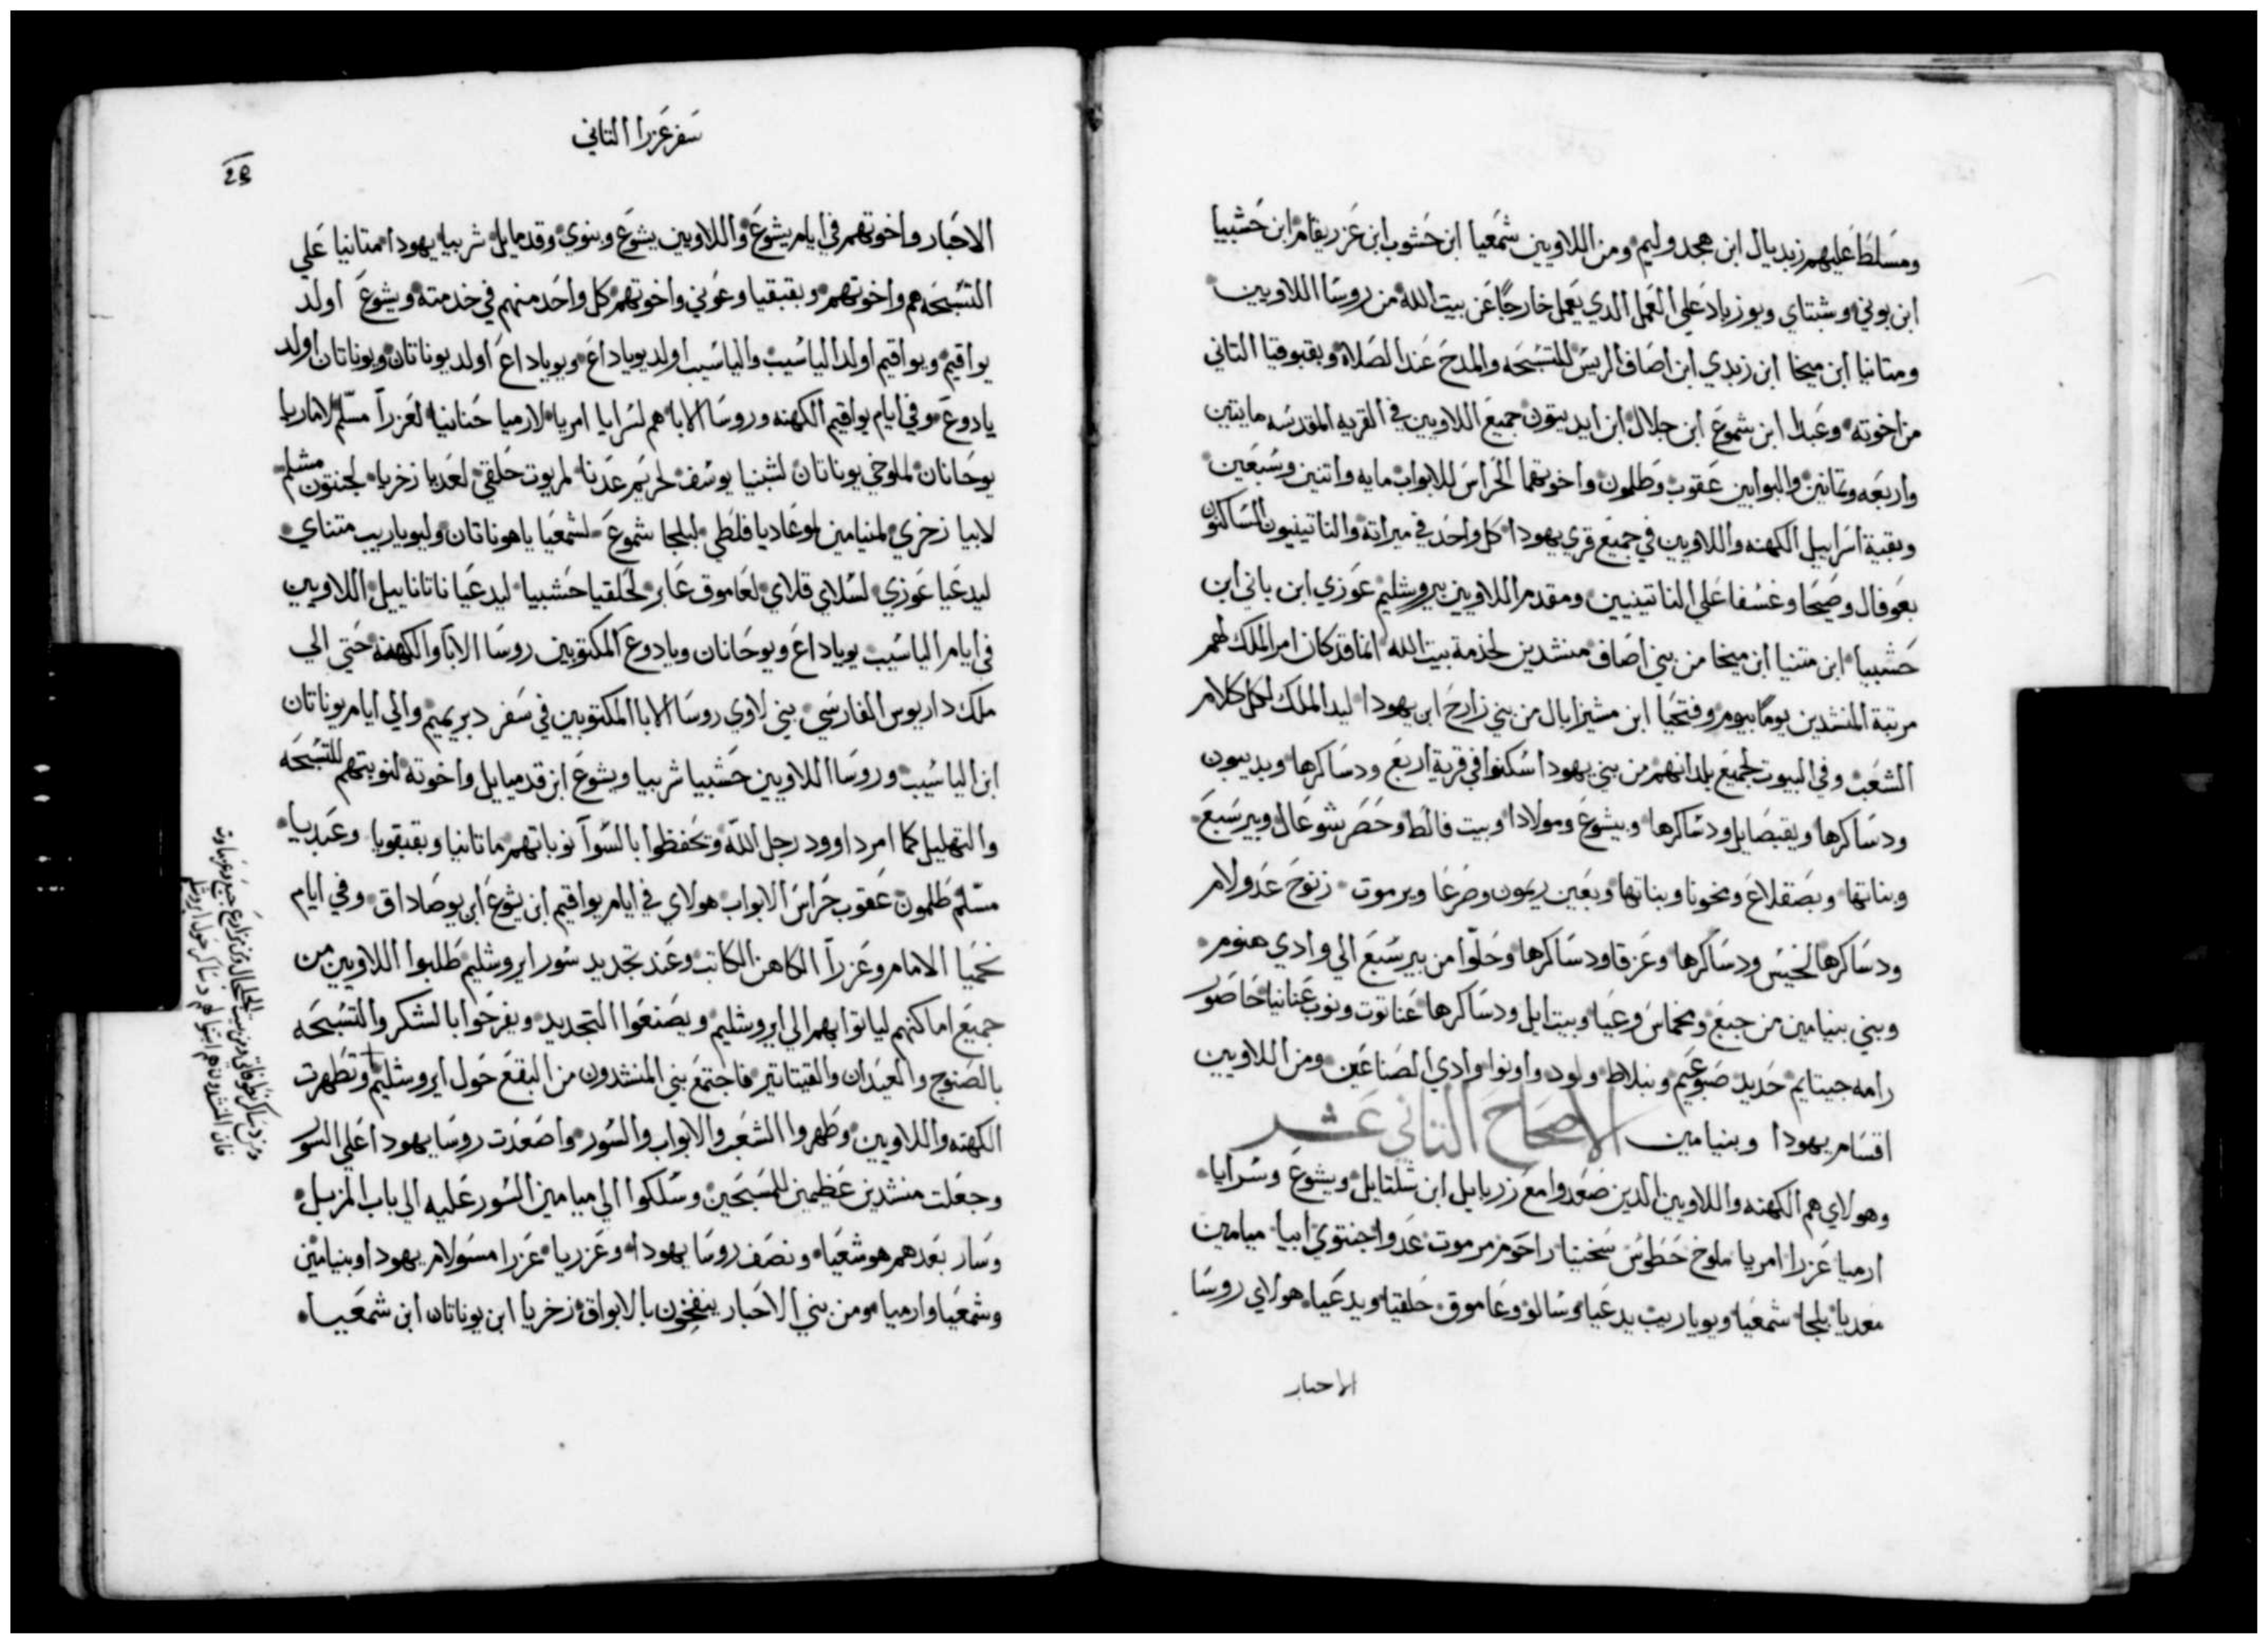 ومسَلطَ عَليهم زبديال ابن هجدوليم ومن اللاويين شمَعيا ابن حَشوب ابن عَزريقام ابن حَشبيا
ابن بوني وشبتاي ويوزياد عَلي العَمل الدي يَعمل خارجًا عَن بيت الله من روسَا اللاويين
ومتانيا ابن ميخا ابن زبدي ابن اصَاف الريسَ للتسَبحَه والمدحَ عَند الصَلاه وبقبوقيا التاني
من اخوته وعَبدا ابن شموعَ ابن جلال ابن ايديتون جميعَ اللاويين في القريه المقدسَه مايتين
واربعَه وتمانين والبوابين عَقوب وطَلمون واخوتهما الحَراسَ للابواب مايه واتنين وسَبعَين
وبقية اسَراييل الكهنه واللاويين في جميعَ قري يهودا كل واحَد في ميراته والناتينيون السَاكنون
بعَوفال وصَيحَا وغسَفا عَلي الناتينيين ومقدم اللاويين بيروشليم عَوزي ابن باني ابن
حَشبيا ابن متنيا ابن ميخا من بني اصَاف منشدين لخدمة بيت الله انما قد كان امر الملك لهم
مرتبة المنشدين يومًا بيوم وفتحَيا ابن مشيزابال من بني زارحَ ابن يهودا ليد الملك لكل كلام
الشعَب وفي البيوت لجميعَ بلدانهم من بني يهودا اسَكنوا في قرية اربعَ ودسَاكرها وبديبون
ودسَاكرها ويقبصَايل ودسَاكرها وبيشوعَ ومولادا وبيت فالطَ وحَصَر شوعَال وبيرسَبعَ
وبناتها وبصَقلاعَ ومخونا وبناتها وبعَين ريمون وصَرعَا ويرموت زنوحَ عَدولام
ودسَاكرها لخيسَ ودسَاكرها وعَزقا ودسَاكرها وحَلّوا من بيرسَبعَ الي وادي هنوم
وبني بنيامين من جبعَ ومخماسَ وعَيا وبيت ايل ودسَاكرها عَناتوت ونوب عَنانيا حَاصَور
رامه جيتايم حَديد صَبوعَيم ونبلاط ولود واونوا وادي الصَناعَين ومن اللاويين
اقسَام يهودا وبنيامين الاصحَاحَ التاني عَشر
وهولاي هم الكهنه واللاويين الدين صَعَدوا معَ زربابل ابن شلتايل ويشوعَ وسَرايا
ارميا عَزرا امريا ملوخ حَطَوسَ سَخنيا راحَوم مرموت عَدوا جنتوي ابيا ميامين
معَديا بلجا شمعَيا ويوياريب يدعَيا وسَالو وعَاموق حَلقيا ويدعَيا هولاي روسَا
الاحبار
سَفر عَزرا التاني
29
الاحَبار واخوتهم في ايام يشوعَ واللاويين يشوعَ وبنوي وقدمايل شربيا يهودا متانيا عَلي
التسَبحَه هم واخوتهم وبقبقيا وعَوني واخوتهم كل واحَد منهم في خدمته ويشوعَ اولد
يواقيم ويواقيم اولد الياسَيب والياسَيب اولد يوياداعَ ويوياداعَ اولد يوناتان ويوناتان اولد
يادوعَ وفي ايام يواقيم الكهنه وروسَا الابا هم لسَرايا امريا لارميا حَنانيا لعَزرآ مسّلم لاماريا
يوحَانان لملوخي يوناتان لشبنيا يوسَف لحريم عَدنا لمريوت حَلقي لعَديا زخريا لجنتون مشلم
لابيا زخري لمنيامين لوعَاديا فلطَي لبلجا شموعَ لشمعَيا ياهوناتان وليوياريب متناي
ليدعَيا عَوزي لسَلاي قلاي لعَاموق عَابر لحَلقيا حَشبيا ليدعَيا ناتاناييل اللاويين
في ايام الياسَيب يوياداعَ ويوحَانان ويادوعَ المكتوبين روسَا الابا والكهنه حَتي الي
ملك داريوس الفارسَي بني لاوي روسَا الابا المكتوبين في سَفر دبريميم والي ايام يوناتان
ابن الياسَيب وروسَا اللاويين حَشبيا شربيا ويشوعَ ابن قدميايل واخوته لنوبتهم للتسَبحَه
والتهليل كما امر داوود رجل الله وتحَفظوا بالسَوآ نوباتهم ماتانيا وبقبقويا وعَبديا
مسّلم طَلمون عَقوب حَراسَ الابواب هولاي في ايام يواقيم ابن يشوعَ ابن يوصَاداق وفي ايام
نحَميا الامام وعَزرآ الكاهن الكاتب وعَند تجديد سَور ايروشليم طَلبوا اللاويين من
جميعَ اماكنهم لياتوا بهم الي ايروشليم ويصَنعَوا التجديد ويفرحَوا بالشكر والتسَبحَه
بالصَنوج والعَيدان والقيتاتير فاجتمعَ بني المنشدون من البقعَ حَول ايروشليم وتطَهرت
الكهنه واللاويين وطَهروا الشعَب والابواب والسَور واصَعَدت روسَا يهودا عَلي السَور
وجعَلت منشدين عَظيمين للمسَبحَين وسَلكوا الي ميامين السَور عَليه الي باب المزبل
وسَار بعَدهم هوشعَيا ونصَف روسَا يهودا وعَزريا عَزرا مسَولام يهودا وبنيامين
وشمعَيا وارميا ومن بني الاحَبار ينفخون بالابواق زخريا ابن يوناتان ابن شمعَيا